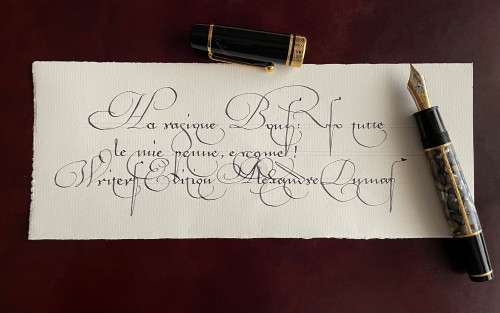 Ha ragione tutte
le mie penne, eccome!
Writers Edition Alexandre Dumas